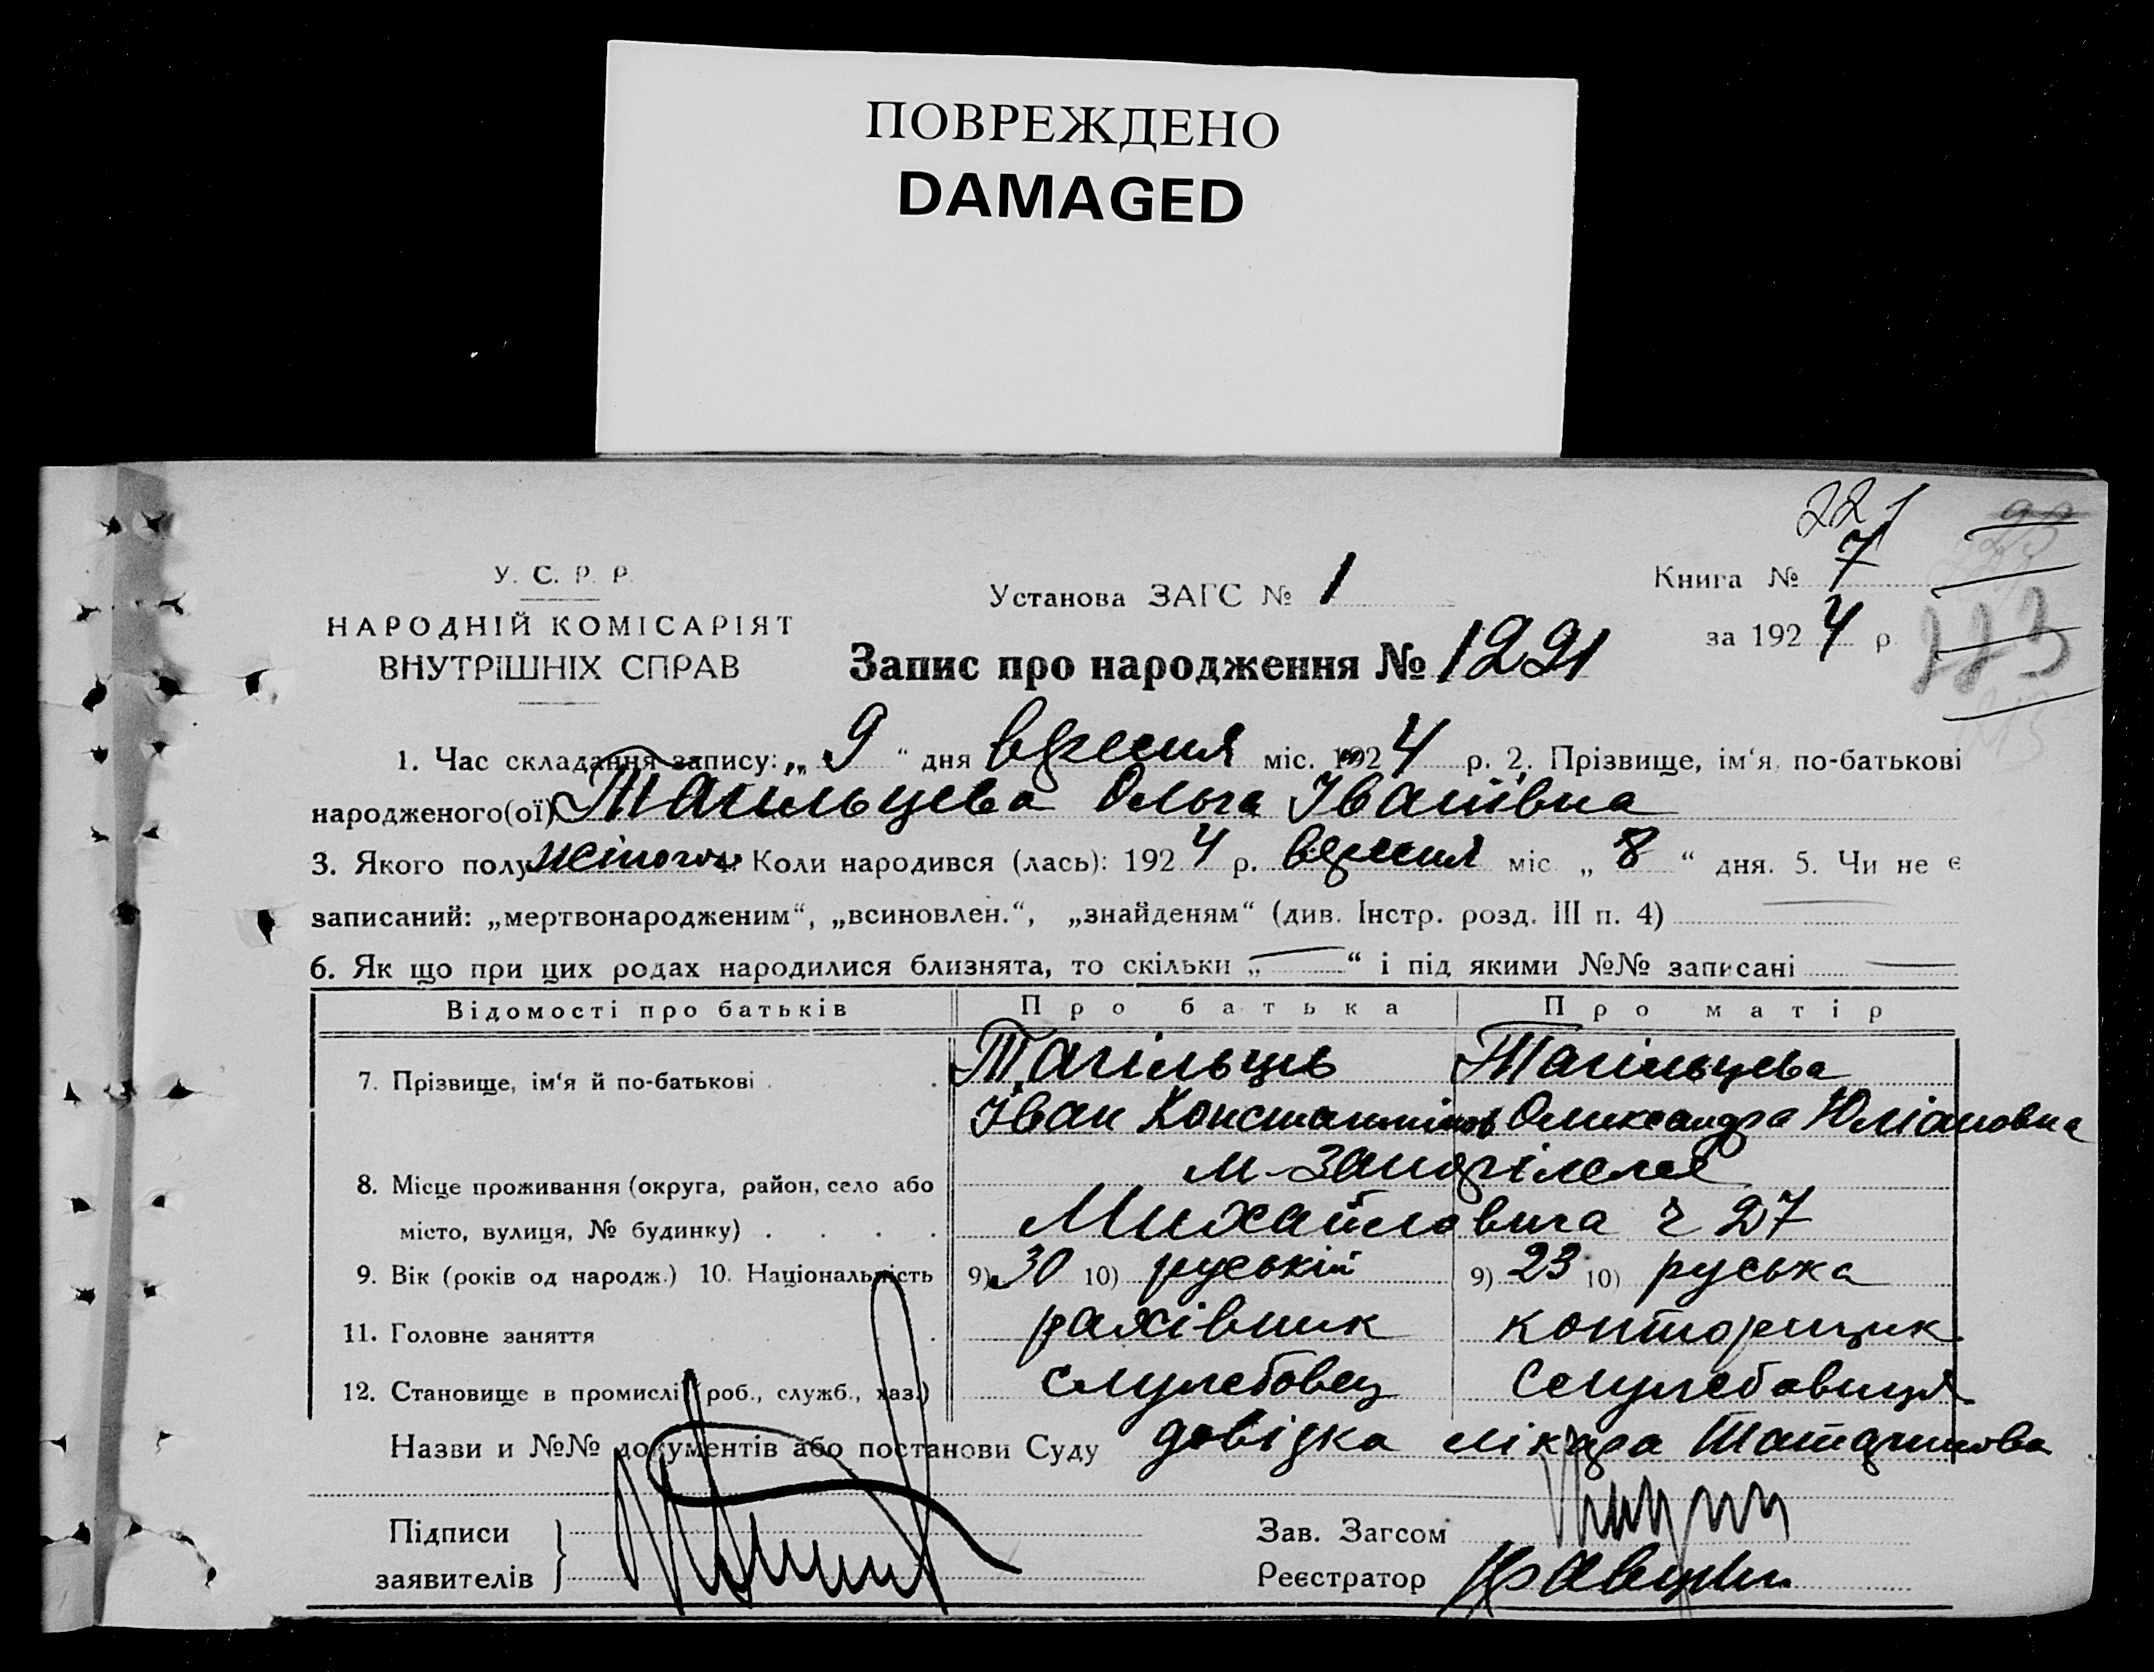 ПОВРЕЖДЕНО
DAMAGED
У. С. Р. Р.
НАРОДНІЙ КОМІСАРІЯТ
ВНУТРІШНІХ СПРАВ
Установа ЗАГС № 1
221
Книга № 7
за 1924 р
223
Запис про народження № 1221
1. Час складання запису: „ 9 “ дня вересня міс. 1924 р. 2. Прізвище, ім‘я, по-батькові
народженого(ої) Тагильцева Ольга Іванівна
3. Якого полу жіночого 4. Коли народився (лась): 1924 р. вересня міс. „ 8 “ дня. 5. Чи не є
записаний: „мертвонародженим“, „всиновлен.“, „знайденям“ (див. Інстр. розд. III п. 4)
6. Як що при цих родах народилися близнята, то скільки „ — “ і під якими №№ записані —
Відомості про батьків Про батька Про матір
7. Прізвище, ім‘я й по-батькові Тагільців Тагільцева
Іван Константінов Олександра Юліановна
8. Місце проживання (округа, район, село або м-Запоріжжє
місто, вулиця, № будинку) Михайловича ч 27
9. Вік (років од народж.) 10. Національність 9) 30 10) руській 9) 23 10) руська
11. Головне заняття рахівник конторщик
12. Становище в промислі (роб., служб., хаз.) службовец службовиця
Назви и №№ документів або постанови Суду довідка лікаря Татаринова
Підписи
заявителів
Зав. Загсом
Реєстратор